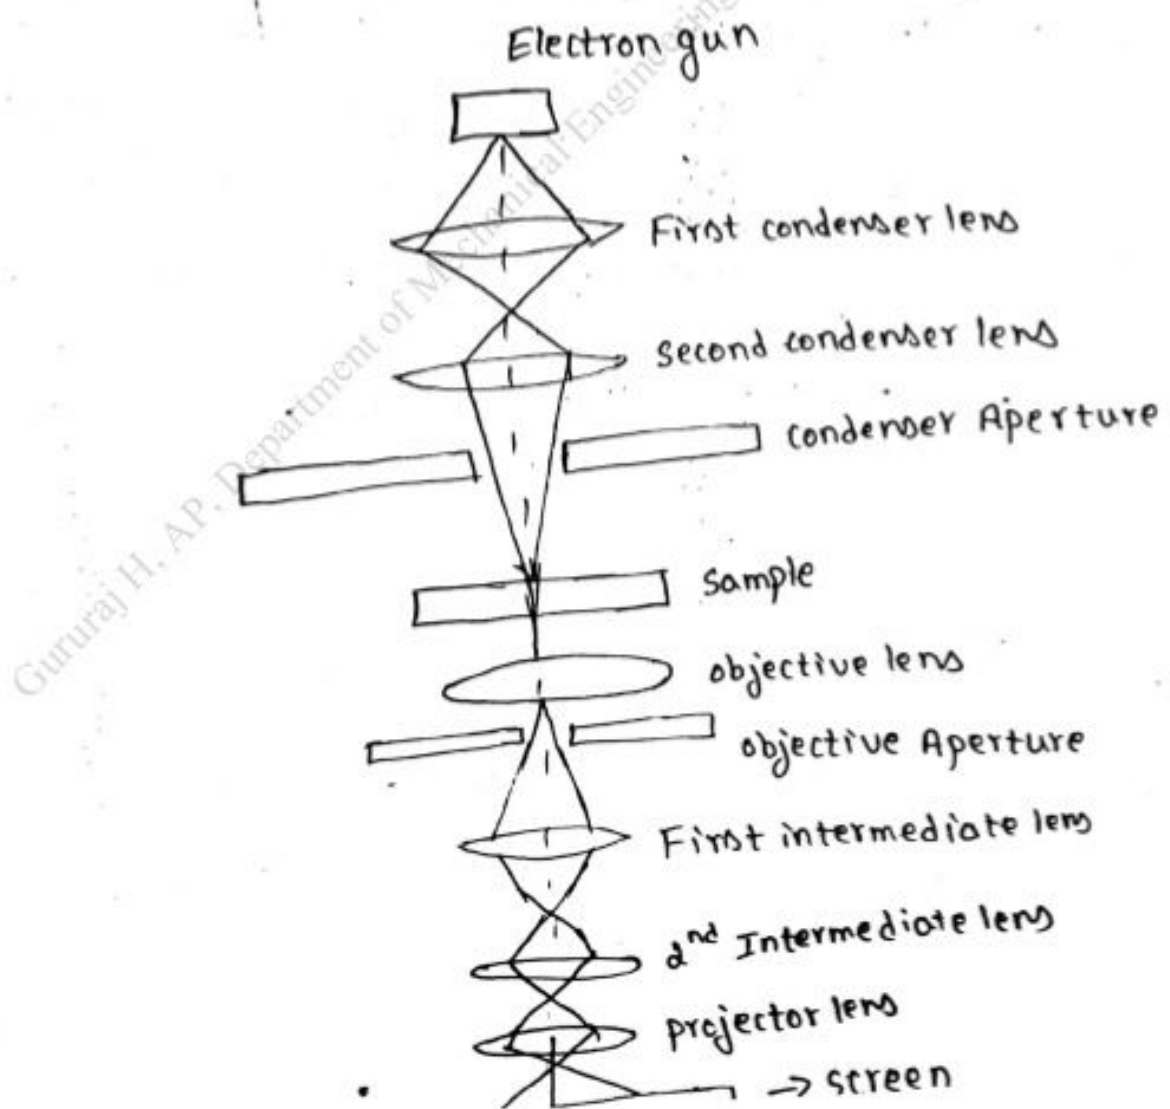 Electron gun
First condenser lens
second condenser lens
condenser Aperture
sample
objective lens
objective Aperture
First intermediate lens
2nd Intermediate lens
projector lens
→ screen
Gururaj H, AP, Department of Mechanical Engineering